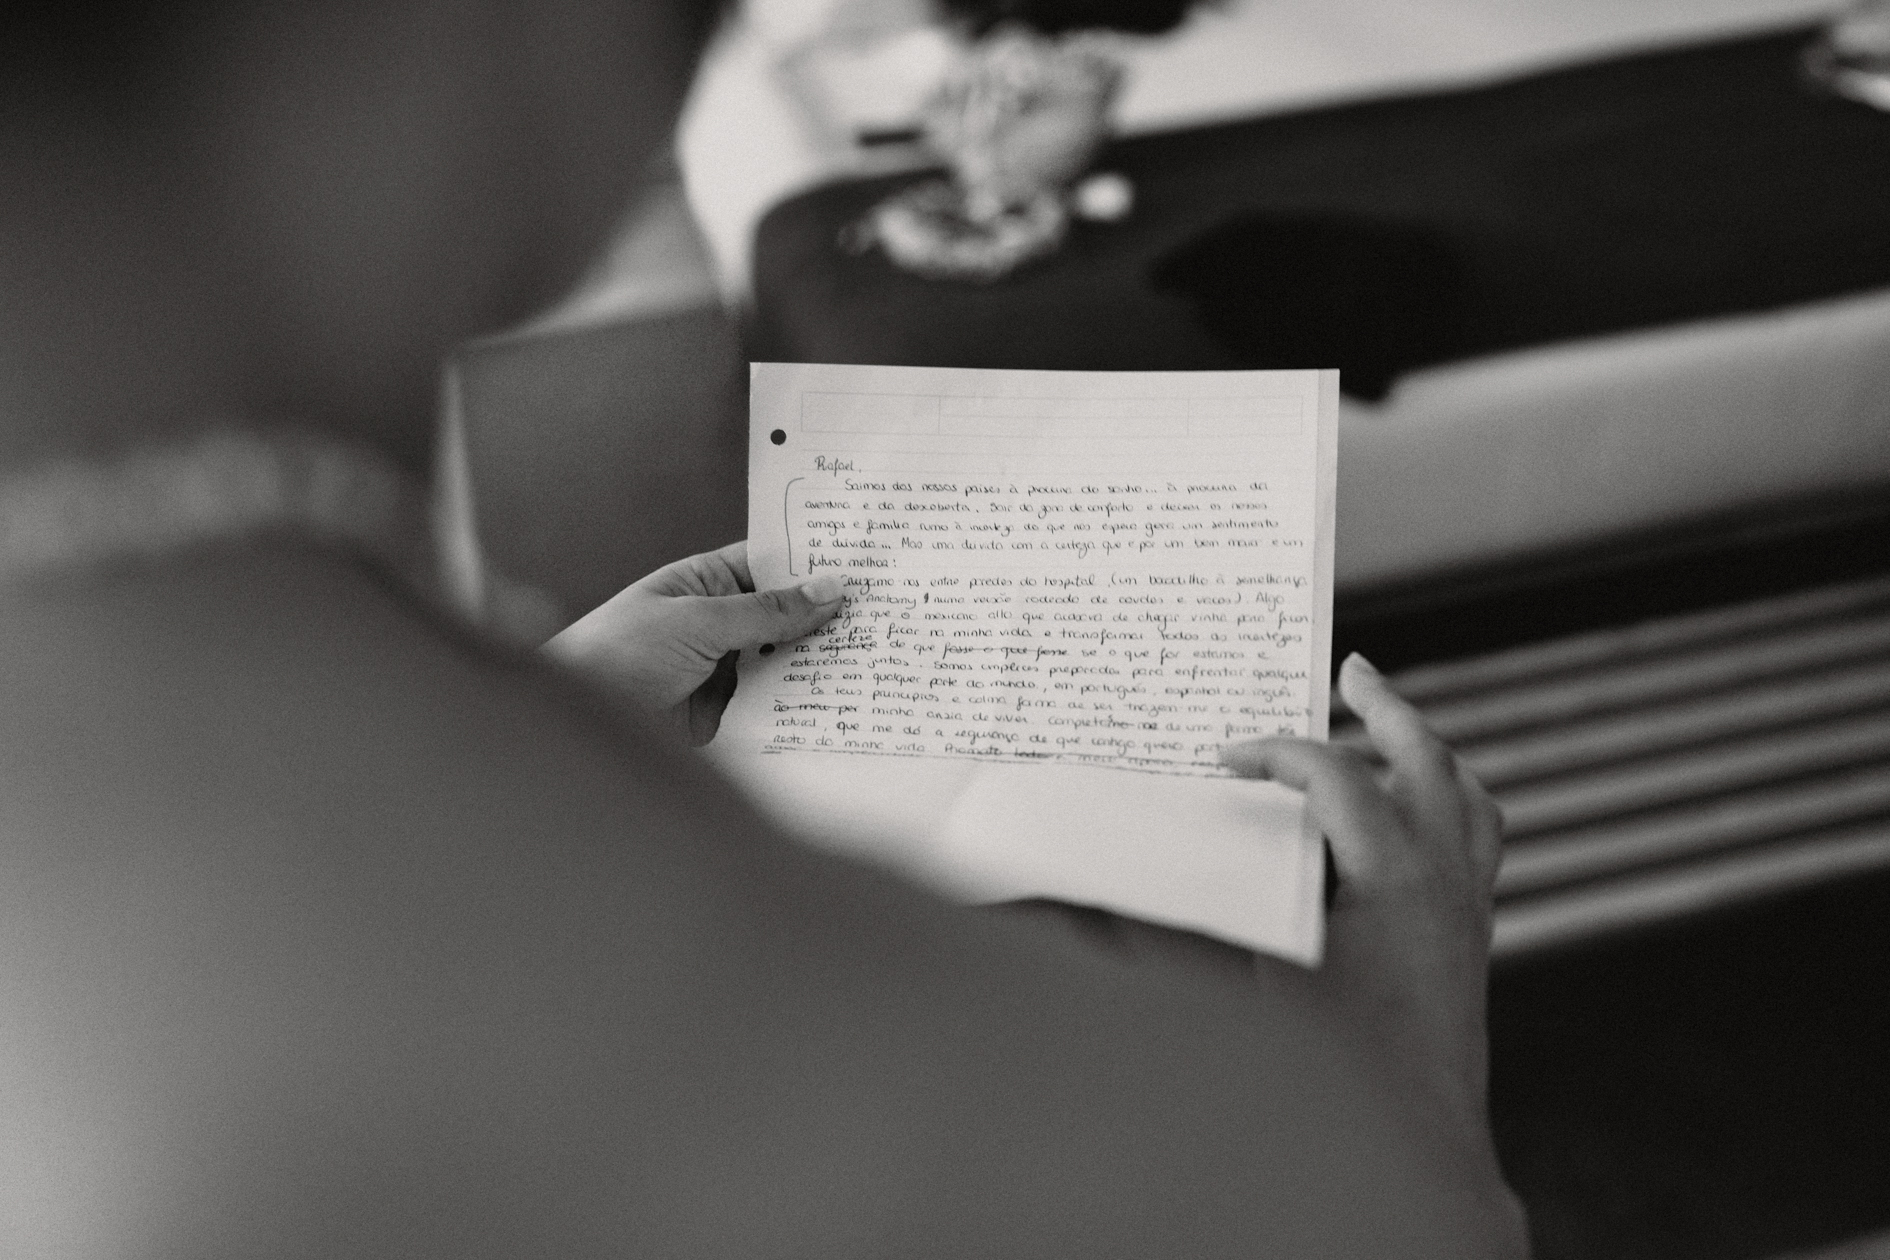 Rafael,
Saímos dos nossos países à procura do sonho... à procura da
aventura e da descoberta. Sair da zona de conforto e deixar os nossos
amigos e família rumo à incerteza do que nos espera gera um sentimento
de dúvida... Mas uma dúvida com a certeza que é por um bem maior e um
futuro melhor:
Cruzamo-nos entre paredes do hospital, (um bocadinho à semelhança
y's Anatomy numa versão rodeada de cavalos e vacas). Algo
que o mexicano alto que acabava de chegar vinha para ficar,
para ficar na minha vida e transformar todas as incertezas
certeza
na segurança de que fosse o que fosse se o que for estamos e
estaremos juntos. Somos cúmplices preparados para enfrentar qualquer
desafio em qualquer parte do mundo, em português, espanhol ou inglês.
Os teus princípios e calma forma de ser trazem-me o equilíbrio
ao meu por minha ansia de viver. de uma forma tão
natural, que me dá a segurança de que contigo quero
resto da minha vida. Prometo todo o meu